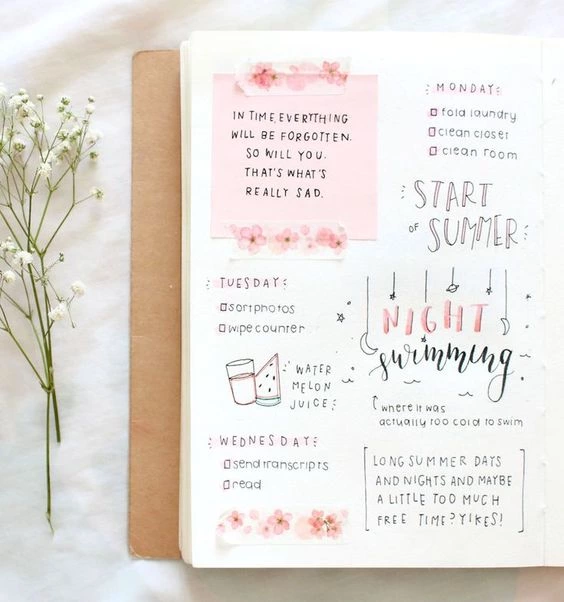 IN TIME, EVERYTHING
WILL BE FORGOTTEN.
SO WILL YOU.
THAT'S WHAT'S
REALLY SAD.
MONDAY
fold laundry
clean closet
clean room
START
OF SUMMER
TUESDAY
sort photos
wipe counter
WATER
MELON
JUICE
NIGHT
swimming
where it was
actually too cold to swim
WEDNESDAY
send transcripts
read
LONG SUMMER DAYS
AND NIGHTS AND MAYBE
A LITTLE TOO MUCH
FREE TIME? YIKES!